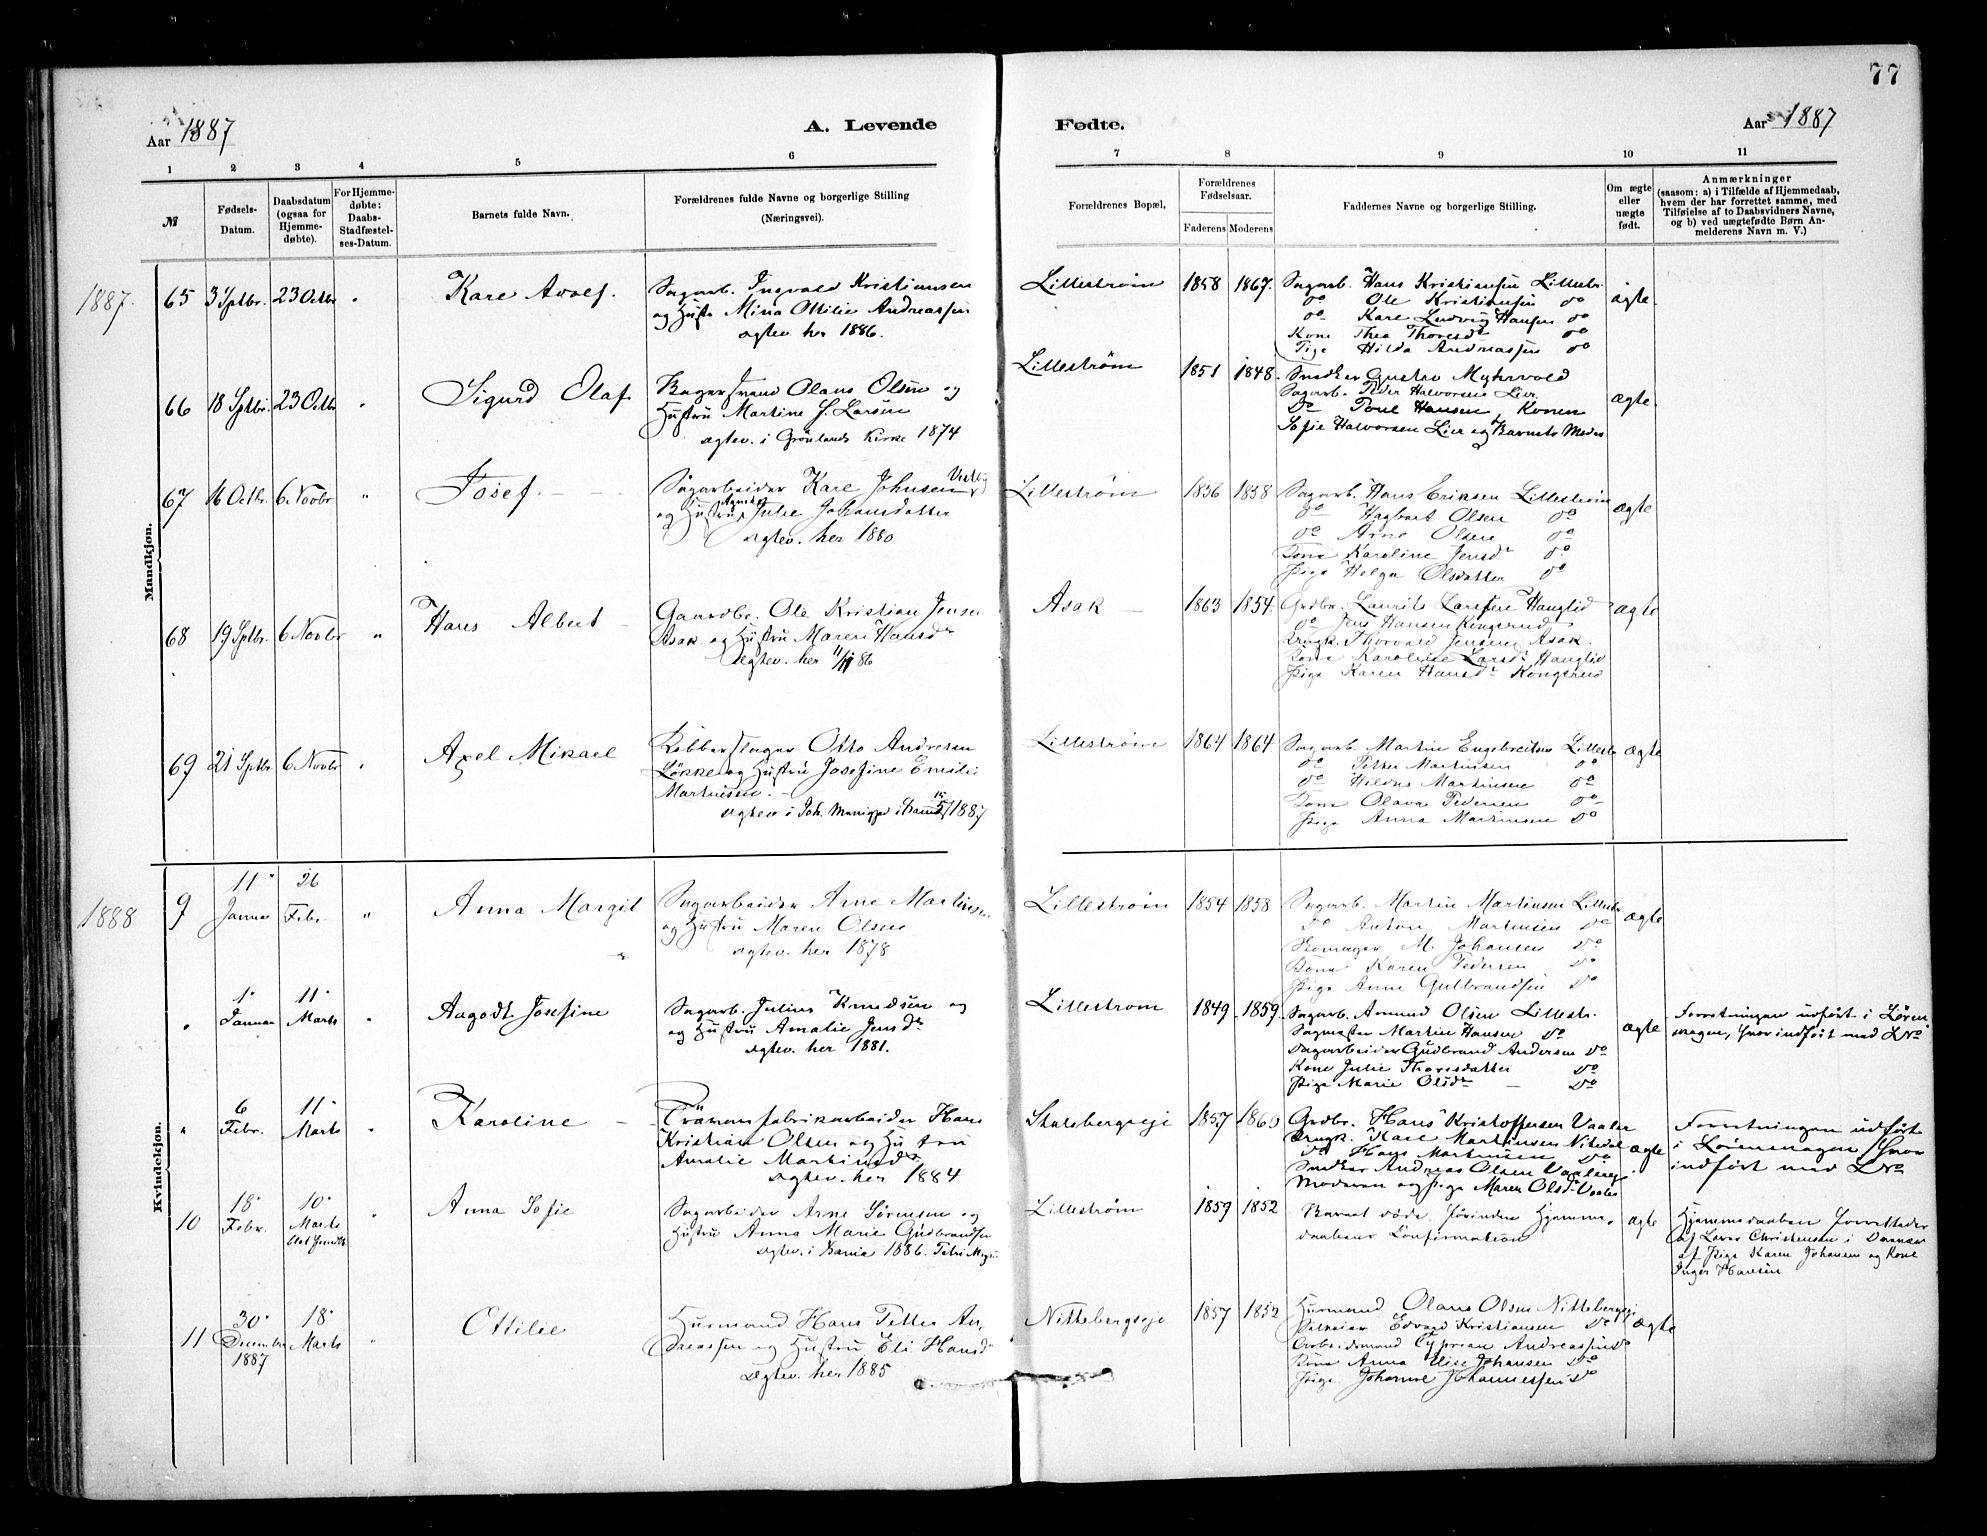 77
Aar 1887
A. Levende
Fødte.
Aar 1887
1 2 3 4 5 6 7 8 9 10 11
№
Fødsels-Datum.
Daabsdatum (ogsaa for Hjemme-døbte).
For Hjemme-døbte: Daabs-Stadfæstel-ses-Datum.
Barnets fulde Navn.
Forældrenes fulde Navne og borgerlige Stilling
(Næringsvei).
Forældrenes Bopæl.
Forældrenes Fødselsaar.
Faderens Moderens
Faddernes Navne og borgerlige Stilling.
Om ægte eller uægte født.
Anmærkninger
(saasom: a) i Tilfælde af Hjemmedaab,
hvem der har forrettet samme, med
Tilføielse af to Daabsvidners Navne,
og b) ved uægtefødte Børn An-
melderens Navn m. V.)
Mandkjøn.
1887.
65 3 Sptbr. 23 Octbr " Karl Adolf.
Sagarb. Ingvald Kristiansen
og Hustr Mina Ottilie Andreassen
ægtev. her 1886.
Lillestrøm 1858 1867.
Sagarb. Hans Kristiansen Lillestr
do Ole Kristiansen do
do Karl Ludvig Hansen do
Kone Thea Thoresdr do
Pige Hilda Andreassen do
ægte
66 18 Sptbr. 23 Octbr " Sigurd Olaf.
Bagersvend Olaus Olsen og
Hustru Martine J. Larsen
ægtev. i Grønlands Kirke 1874
Lillestrøm 1851 1848.
Snedker Gustav Myhrvold
Sagarb. Peder Halvorsen Lier
Do Poul Hansen, Konen
Sofie Halvorsen Lier og Barnets Moder
ægte.
67 16 Octbr. 6 Novbr " Josef.
Sagarbeider Karl Johnsen Vestby
og Hustru Agnethe Julie Johansdatter
ægtev. her 1880
Lillestrøm 1856 1858
Sagarb. Hans Eriksen Lillestrøm
do Hagbart Olsen do
do Arne Olsen do
Kone Karoline Jensdr do
Pige Helga Olsdatter do
ægte
68 19 Sptbr. 6 Novbr " Hans Albert
Gaardbr. Ole Kristian Jensen
Asak og Hustru Maren Hansdr
ægtev. her 11/11 86
Asak 1863 1854.
Grdbr. Laurits Larsen Haugtid
do Jens Hansen Kongsrud
Ungk. Thorvald Jensen Asak.
Kone Karoline Larsdr Haugtid
Pige Karen Hansdr Kongsrud
ægte
69 21 Sptbr 6 Novbr " Axel Mikael
Kobberslager Otto Andresen
Løkke og Hustru Josefine Emilie
Martinsen.
ægtev i Joh. 1887
Lillestrøm 1864 1864
Sagarb. Martin Engebretsen Lillestr
do Petter Martinsen do
do Hildus Martinsen do
Kone Olava Pedersen do
Pige Anna Martinsen do
ægte
Kvindekjøn.
1888
9 11 Januar 26 Febr. " Anna Margit
Sagarbeider Arne Martinsen
og Hustru Maren Olsen
ægtev. her 1878
Lillestrøm 1854 1858
Sagarb. Martin Martinsen Lillestr
do Anton Martinsen do
Skomager M. Johansen do
Kone Karen Pedersen do
Pige Anne Gulbrandsen do
ægte
" 1 Januar 11 Marts " Aagodt Josefine
Sagarb. Julius Knudsen og
og Hustru Amalie Jensdr
ægtev. her 1881.
Lillestrøm 1849. 1859.
Sagarb. Amund Olsen Lillestr.
Sagmester Martin Hansen do
Sagarbeider Gudbrand Andersen do
Kone Julie Thoresdatter do
Pige Marie Olsdr do
ægte
Forretningen udført i Løren
skogen, hvor indført med LNo
" 6 Febr. 11 Marts " Karoline
Trämassefabrikarbeider Hans
Kristian Olsen og Hustru
Amalie Martinsdr
ægtev. her 1884
Skalsbergseje 1857 1860
Grdbr. Hans Kristoffersen Vaaler
Ungk. Karl Martinsen Nitedal
do Hans Martinsen do
Snedker Andreas Olsen Vaalereje
Moderen og Pige Maren Olsdr Vaaler
ægte
Forretningen udført
i Lørenskogen, hvor
indført med LNo
10 18 Febr. 10 Marts " Anna Sofie
Sagarbeider Arne Sørensen og
Hustru Anna Marie Gudbrandsen
ægtev. i 1886.
Lillestrøm 1859 1852
Barnet døde forinden Hjemme-
daabens Confirmation
ægte
Hjemmedaaben forrettedes
af Lærer Christensen i
af Pige Karen Johansen og Kone
Inger Hansen
11 30 December 1887 18 Marts " Ottilie
Husmand Hans Petter An-
dreassen og Hustru Eli Hansdr
ægtev. her 1885
Nittebergseje 1857 1852
Husmand Olaus Olsen Nittebergseje
Edvard Kristiansen do
Arbeidsmand Cyprian Andreassen do
Kone Anna Elise Johansen do
Pige Johanne Johannessen do
ægte